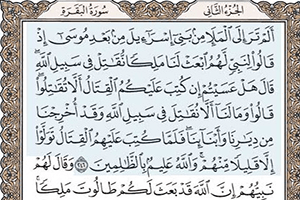 الجزء الثاني سورة البقرة
ألم تر إلى الملإ من بني إسرائيل من بعد موسى إذ
قالوا لنبي لهم ابعث لنا ملكا نقاتل في سبيل الله
قال هل عسيتم إن كتب عليكم القتال ألا تقاتلوا
قالوا وما لنا ألا نقاتل في سبيل الله وقد أخرجنا
من ديارنا وأبنائنا فلما كتب عليهم القتال تولوا
إلا قليلا منهم والله عليم بالظالمين ٢٤٦ وقال لهم
نبيهم إن الله قد بعث لكم طالوت ملكا